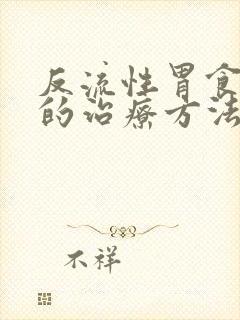 反流性胃食
的治疗方法
不祥